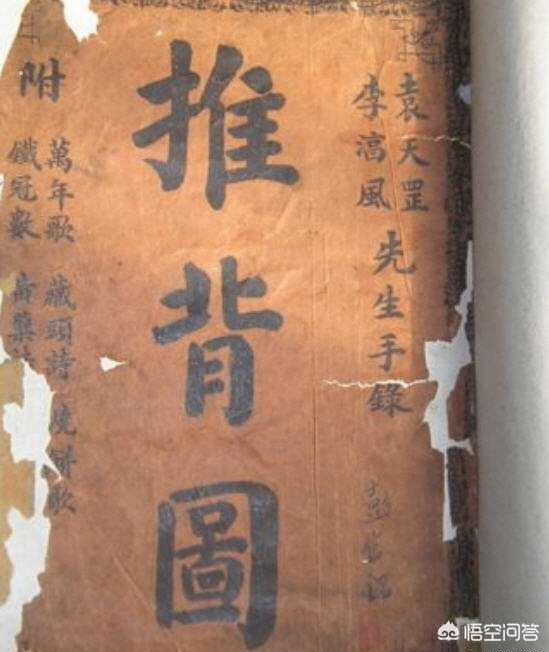 袁天罡
李淳風
先生手錄
推背圖
附
萬年歌 藏頭詩 燒餅歌
鐵冠數
悟空问答